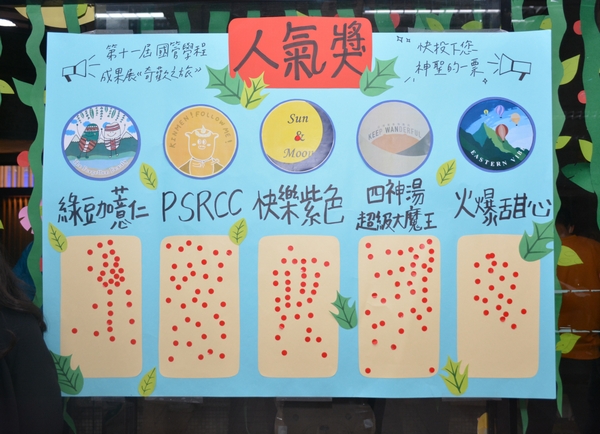 人氣獎
第十一屆國管學程
成果展《奇歡之旅》
快按下您
神聖的一票
FOLLOW ME!
Sun
&
Moon
KEEP WANDERING
EASTERN
綠豆加薏仁
PSRCC
快樂紫色
四神湯
超級大魔王
火爆甜心